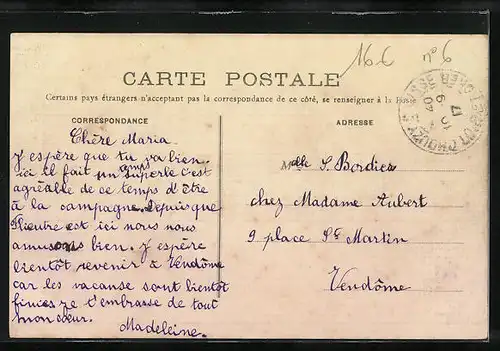 16 €
n° 6
CARTE POSTALE
Certains pays étrangers n'acceptent pas la correspondance de ce côté, se renseigner à la Poste
CORRESPONDANCE
ADRESSE
Chère Maria
J espère que tu va bien
ici il fait un temps superle c'est
agréable de ce temps d'être
à la campagne. Depuis que
est ici nous nous
amusons bien. J espère
bientôt revenir à Vendôme
car les vacanse sont bientôt
finies je t'embrasse de tout
mon cœur.
Madeleine.
Melle S. Bordier
chez Madame Aubert
9 place St Martin
Vendôme
LOIR-ET-CHER